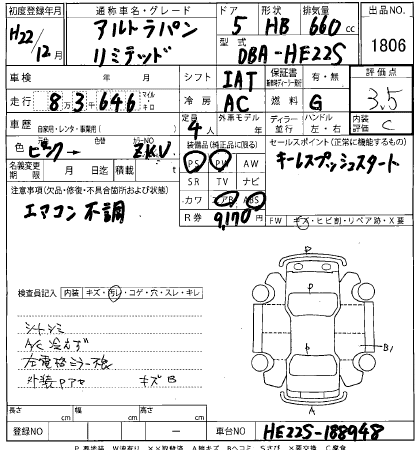 初度登録年月 通称車名・グレード ドア 形状 排気量 出品NO.
H22/12月 アルトラパン リミテッド 5 HB 660cc 1806
型式 DBA-HE22S
車検 年 月 シフト IAT 保証書 有・無 評価点
走行 8万3千646 マイル キロ 冷房 AC 燃料 G 3.5
車歴 自家用・レンタ・事業用( ) 定員 4人 外車モデル 年 ディーラー 並行 ハンドル 左・右 内装評価 C
色 ピンク→ 色替 カラーNO. ZKU 装備品(純正品に限る) セールスポイント(正常に機能するもの)
名義変更期限 月 日迄 積載 t PS PW AW キーレスプッシュスタート
注意事項(欠品・修復・不具合箇所および状態) SR TV ナビ
エアコン不調 カワ エアB ABS
R券 9,170円 FW キズ・ヒビ割・リペア跡・X要
検査員記入 内装 キズ・汚レ・コゲ・穴・スレ・キレ
シートシミ
A/C冷えず
左電格ミラー不良
外装Pアセ キズB
P
P
B
A
長さ cm 幅 cm 高さ cm
登録NO 車台NO HE22S-188948